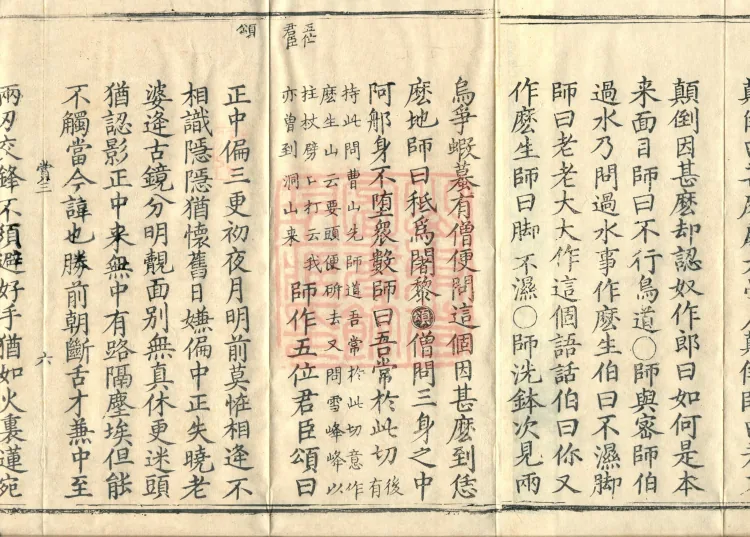 顛倒因甚麼却認奴作郎曰如何是本
来面目師曰不行鳥道○師與密師伯
過水乃問過水事作麼生伯曰不濕脚
師曰老老大大作這個語話伯曰你又
作麼生師曰脚不濕○師洗鉢次見兩
烏爭蝦蟇有僧便問這個因甚麼到恁
麼地師曰秪為闍黎頌僧問三身之中
阿那身不堕衆數師曰吾常於此切後有
持此問曹山先師道吾常於此切意作
麼生山云要頭便斫去又問雪峰峰以
拄杖劈口打云我
亦曾到洞山来
師作五位君臣頌曰
五位
君臣
頌
正中偏三更初夜月明前莫恠相逢不
相識隱隱猶懷舊日嫌偏中正失曉老
婆逢古鏡分明覿面别無真休更迷頭
猶認影正中来無中有路隔塵埃但能
不觸當今諱也勝前朝斷舌才兼中至
賞三 六
兩刃交鋒不須避好手猶如火裏蓮宛